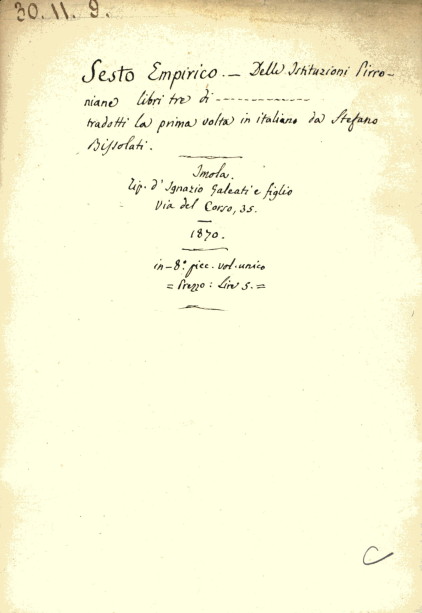 30. 11. 9.
Sesto Empirico. — Delle Istituzioni Pirro-
niane libri tre di -------------
tradotti la prima volta in italiano da Stefano
Bissolati.
Imola.
Tip. d' Ignazio Galeati e figlio
Via del Corso, 35.
1870.
in-8.° picc. vol. unico
= Prezzo: Lire 5. =
C